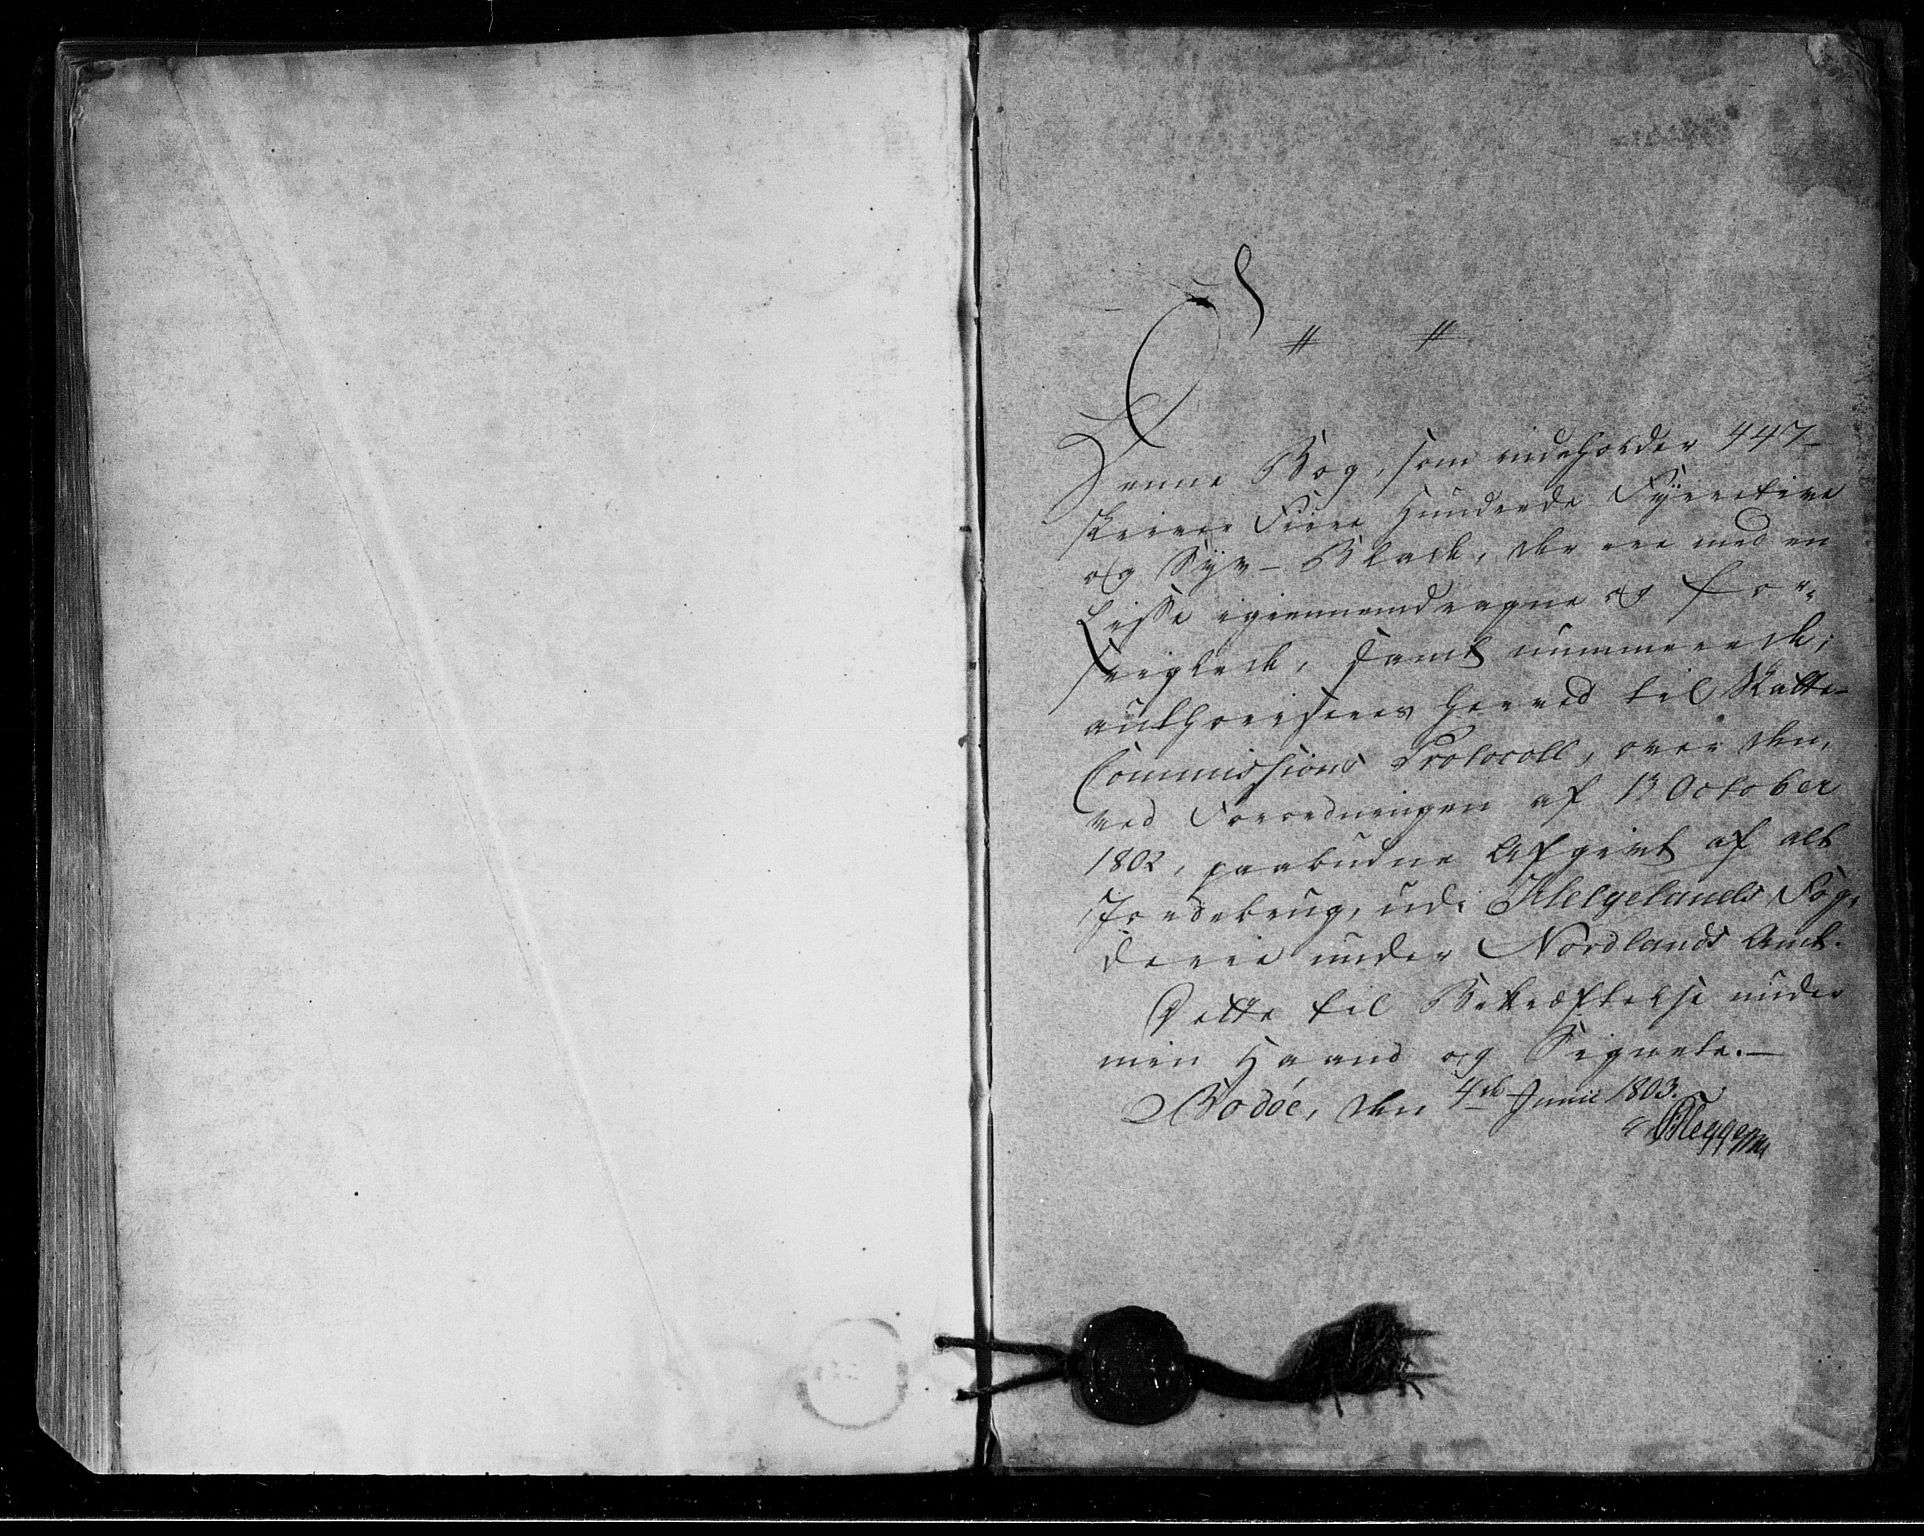 Denne Bog, som indeholder 447
skriver Fiire Hundrede Fyrretive
og Syv - Blade, der ere med en
Lisse igiennemdragne og for-
seiglede, samt nummererede,
authoriseres herved til Skatte-
Commissions Protocoll, over den,
ved Forordningen af 1 October
1802, paabudne Afgivt af alt
Jordebrug, udi Helgelands Fog-
derie under Nordlands Amt.
Dette til Bekræftelse under
min Haand og Signete.
Bodøe, den 4de Junii 1803.